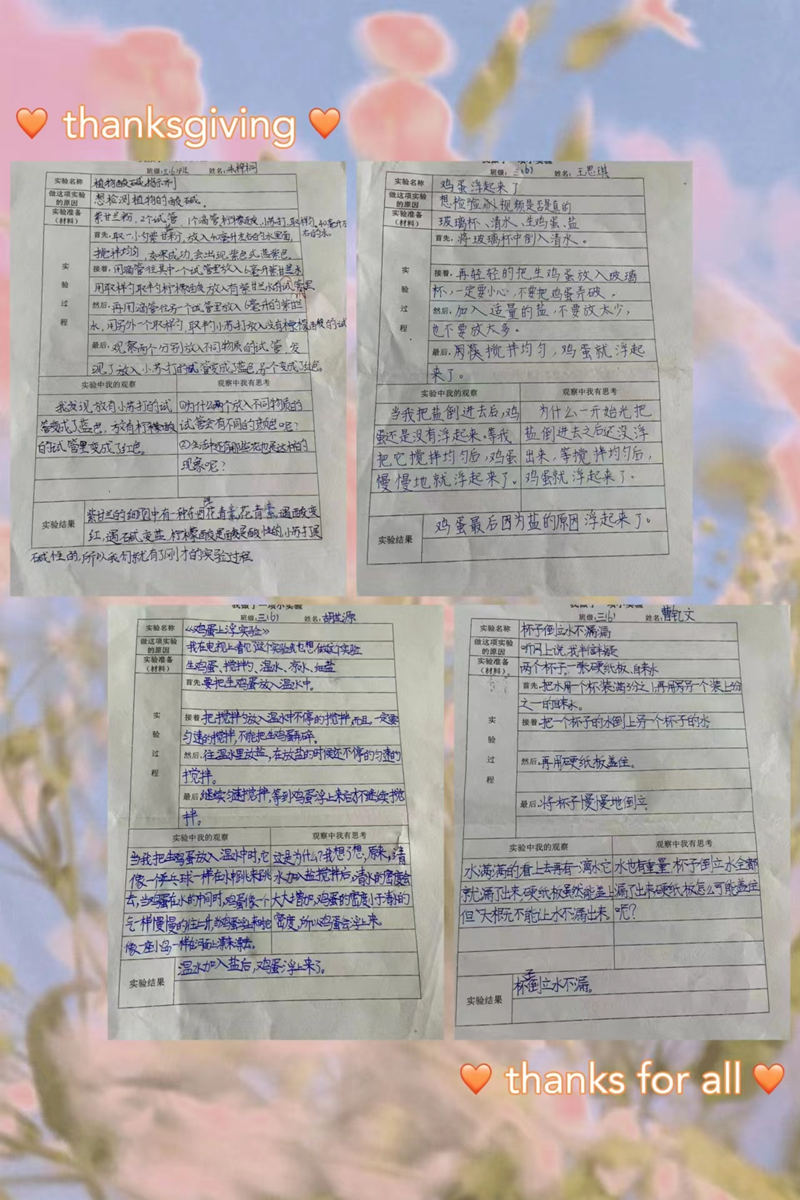 thanksgiving
我做了一项小实验
班级:三(6)班 姓名:
实验名称 植物酸碱指示剂
做这项实验的原因 想检测植物的酸碱。
实验准备(材料) 紫甘兰粉,2个试管 1个滴管,柠檬酸,小苏打,取样勺,40毫升左右的水。
实验过程
首先:取一小勺紫甘粉,放入40毫升左右的水里面,
搅拌均匀,如果成功,会出现紫色或蓝紫色。
接着:用滴管往其中一个试管里放入6毫升紫甘兰水,
用取样勺取1勺柠檬酸放入有紫甘兰水的试管里
然后:再用滴管往另一个试管里放入6毫升的紫甘兰
水,用另外一个取样勺,取1勺小苏打放入没有柠檬酸的试
最后:观察两个分别放入不同物质的试管,发
现了放入小苏打的试管变成了蓝色,另个变成了红色。
实验中我的观察
我发现,放有小苏打的试
管变成了蓝色,放有柠檬酸
的试管里变成了红色。
观察中我有思考
①为什么两个放入不同物质的
试管会有不同的颜色呢?
②生活中还有那些花也是这样的
现象呢?
实验结果 紫甘兰的细胞中有一种色花青素,花青素,遇酸变
红,遇碱变蓝,柠檬酸是酸性的,小苏打是
碱性的,所以我们就有了刚才的实验过程
我做了一项小实验
班级:三(6) 姓名:王思琪
实验名称 鸡蛋浮起来了
做这项实验的原因 想检验从视频是否是真的
实验准备(材料) 玻璃杯、清水、生鸡蛋、盐
实验过程
首先:将玻璃杯中倒入清水。
接着:再轻轻的把生鸡蛋放入玻璃
杯,一定要小心,不要把鸡蛋弄破。
然后:加入适量的盐,不要放太少,
也不要放太多。
最后:用筷搅拌均匀,鸡蛋就浮起
来了。
实验中我的观察
当我把盐倒进去后,鸡
蛋还是没有浮起来。等我
把它搅拌均匀后,鸡蛋
慢慢地就浮起来了。
观察中我有思考
为什么一开始光把
盐倒进去之后还没浮
出来,等搅拌均匀后,
鸡蛋就浮起来了。
实验结果 鸡蛋最后因为盐的原因浮起来了。
我做了一项小实验
班级:三(6) 姓名:胡世源
实验名称 《鸡蛋上浮实验》
做这项实验的原因 我在电视上看见这个实验我也想做这个实验
实验准备(材料) 生鸡蛋、搅拌勺、温水、凉水、细盐
实验过程
首先:要把生鸡蛋放入温水中。
接着:把搅拌勺放入温水中不停的搅拌,而且,一定要
匀速的搅拌,不能把生鸡蛋弄碎。
然后:往温水里放盐,在放盐的时候还不停的匀速的
搅拌。
最后:继续匀速搅拌,等到鸡蛋浮上来后才不继续搅
拌。
实验中我的观察
当我把生鸡蛋放入温水中时,它
像一个乒乓球一样在水中跳来跳
去,当鸡蛋在水的中间时,鸡蛋像一个
气一样慢慢的往上升,当鸡蛋浮上来时
像一座小岛一样在海面上漂来漂去。
观察中我有思考
这是为什么?我想了想,原来,清
水加入盐搅拌后,清水的密度会
大大增加,鸡蛋的密度小于清水的
密度,所以鸡蛋会浮上来。
实验结果 温水加入盐后,鸡蛋浮上来了。
我做了一项小实验
班级:三(6) 姓名:曹钒文
实验名称 杯子倒立水不漏漏
做这项实验的原因 听网上说,我半信半疑
实验准备(材料) 两个杯子,一张硬纸板、自来水
实验过程
首先:把水用一个杯装满3分之1,再用另一个装上3分
之一的自来水。
接着:把一个杯子的水倒上另一个杯子的水
然后:再用硬纸板盖住。
最后:将杯子慢慢地倒立
实验中我的观察
水满满的看上去再有一滴水它
就漏了出来,硬纸板虽然能盖上
但大根元不能让水不漏出来。
观察中我有思考
水也有重量,杯子倒立水全都
漏了出来,硬纸板怎么可能盖住
呢?
实验结果 杯子倒立水不漏。
thanks for all